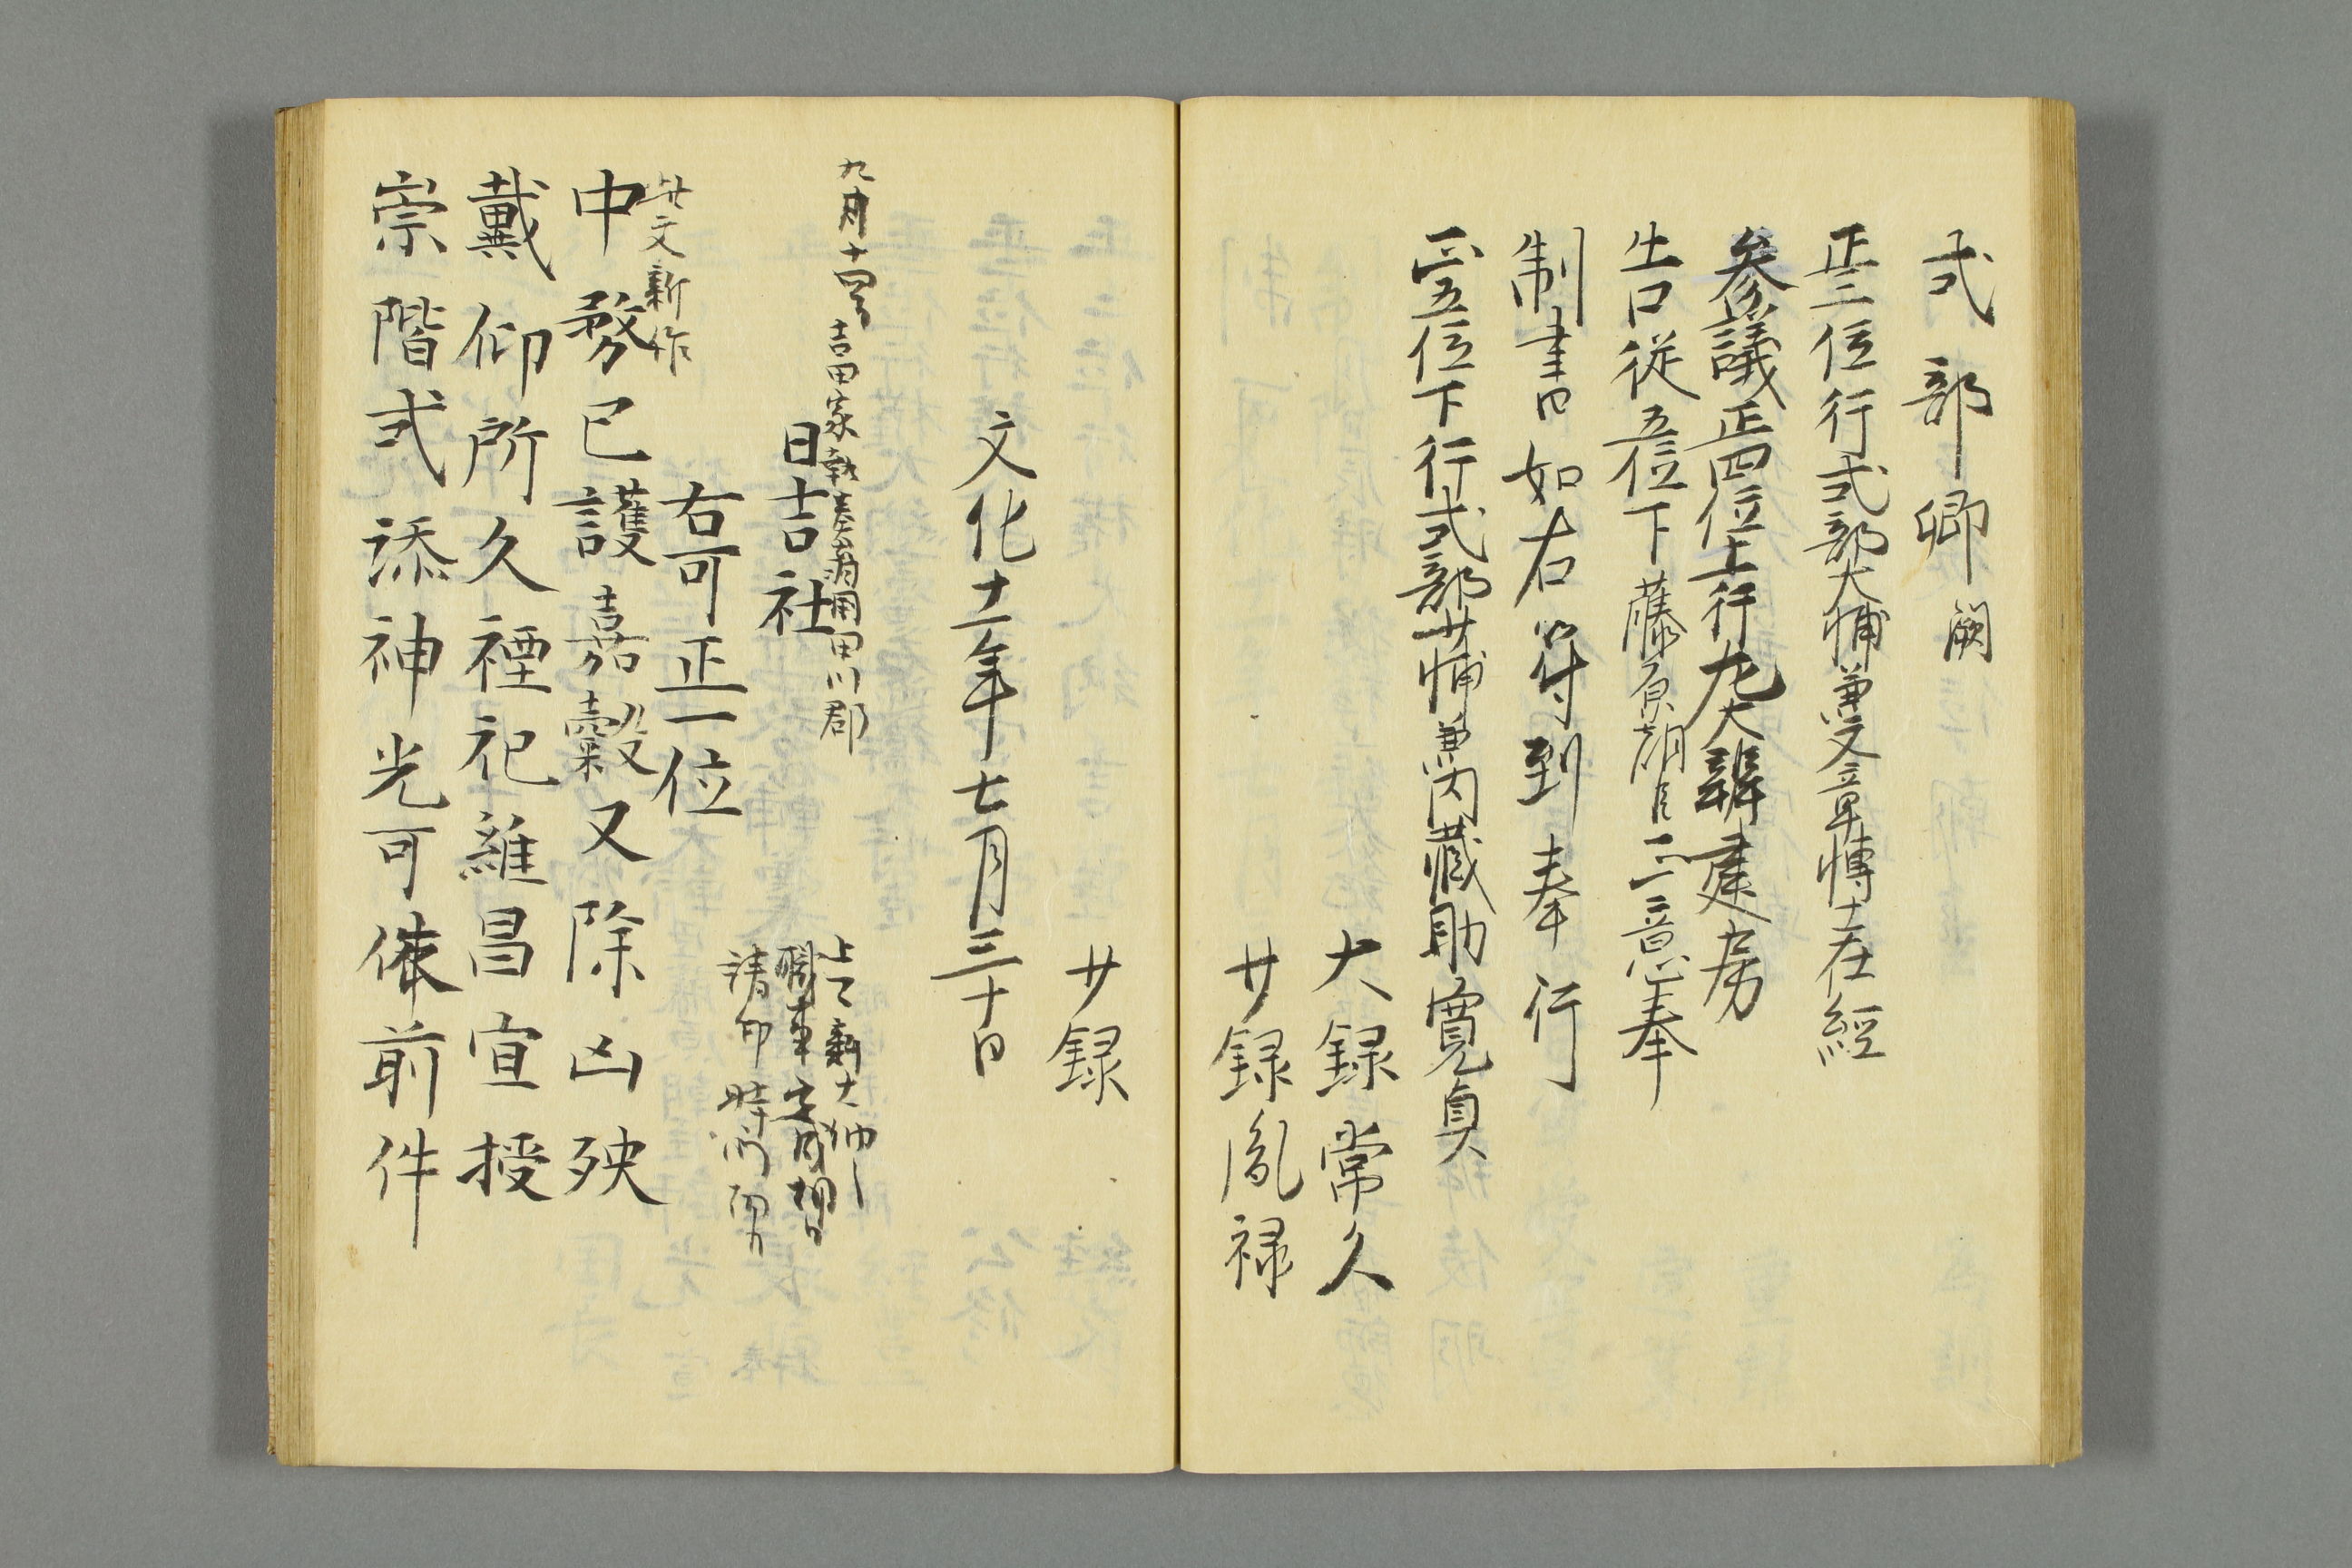 式部卿 闕
正三位行式部大輔兼文章博士在經
参議正四位上行左大辨建房
告従五位下藤原朝臣三意奉
制書如右符到奉行
正五位下行式部少輔兼内藏助寛貞
大録常久
少録胤禄
少録
文化十一年七月三十日
九月十四日 吉田家執奏 豊前国田川郡
日吉社
上卿 新大納言
請印
右可正一位
此文新作
中務已護嘉穀又除凶殃
戴仰所久禋祀維昌宜授
崇階式添神光可依前件